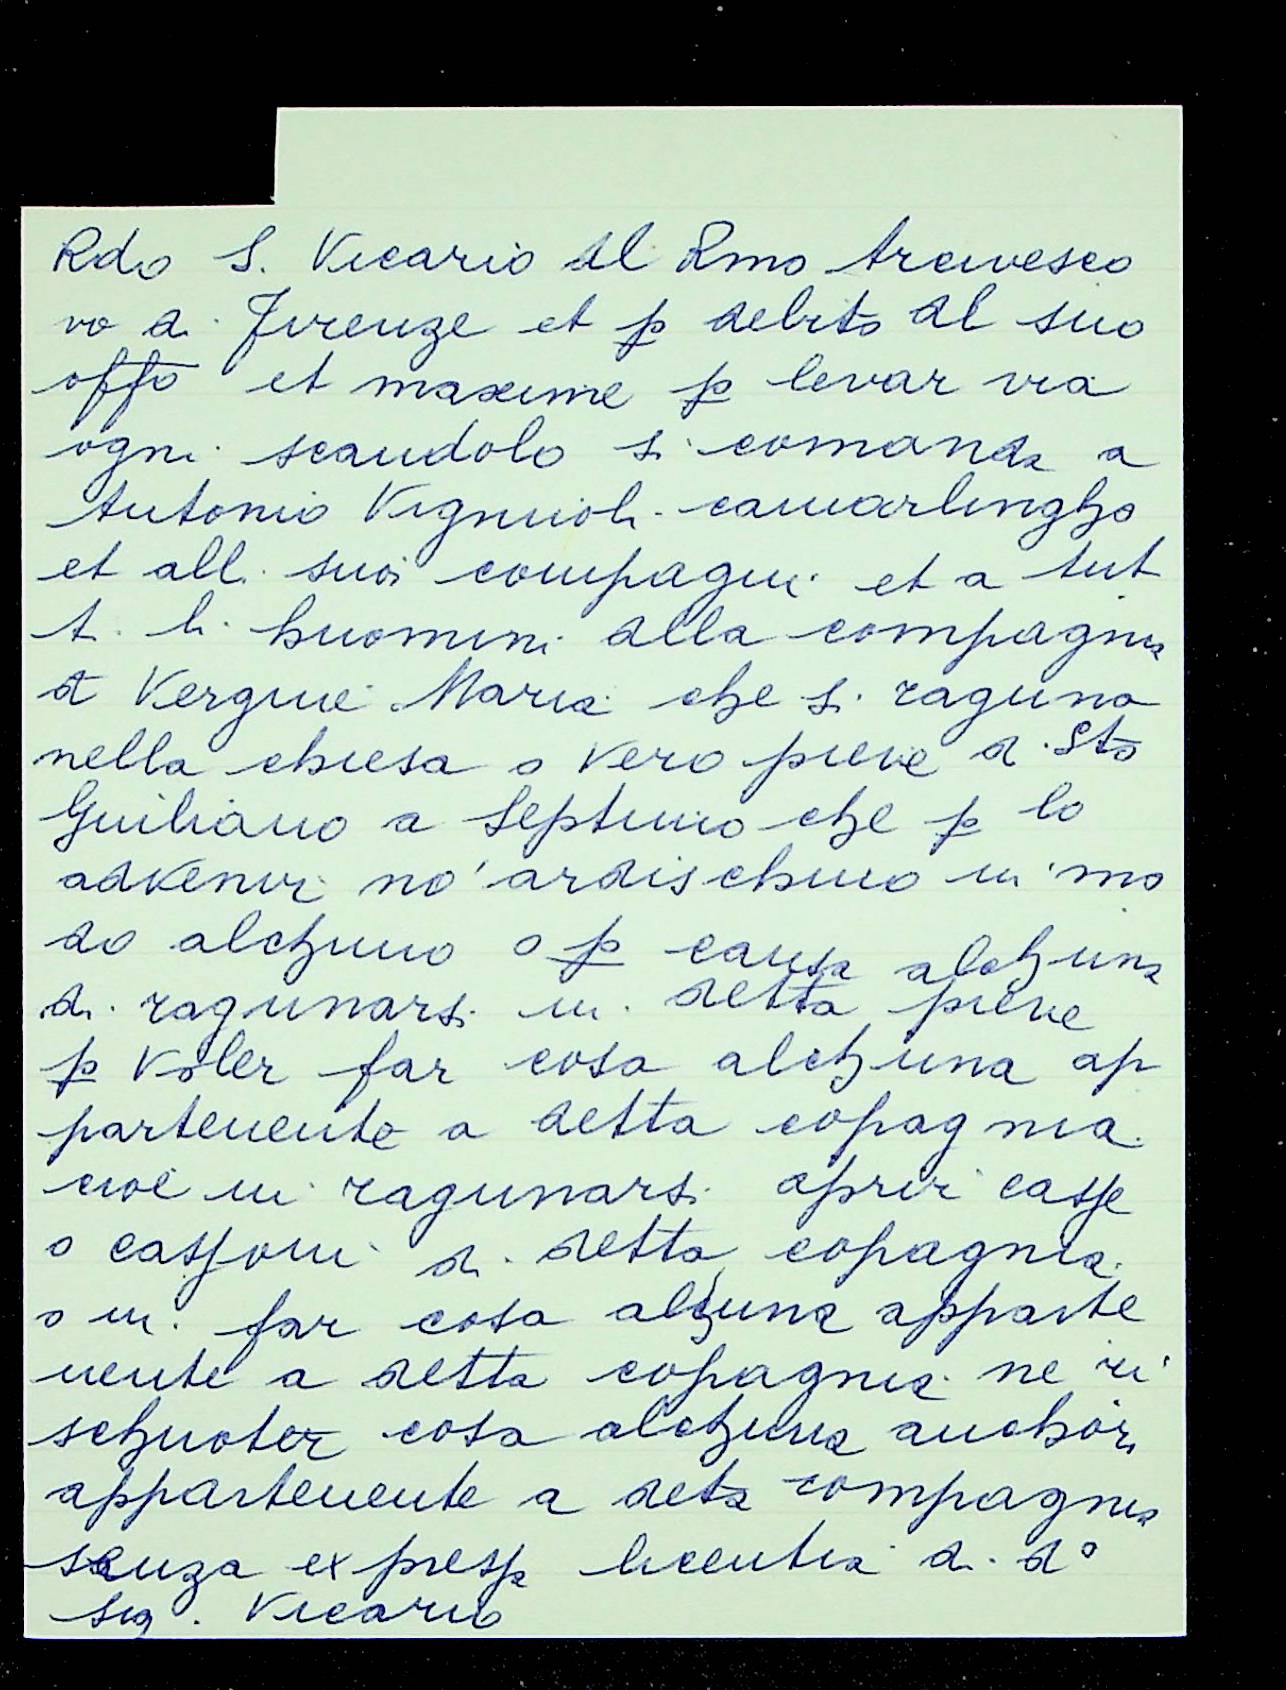 Rdo S. Vicario del Rmo Arcivesco
vo di Firenze et p debito del suo
offo et maxime p levar via
ogni scandolo si comanda a
Antonio Vignioli camarlingho
et alli suoi compagni et a tut
ti li huomini della compagnia
di Vergine Maria che si raguna
nella chiesa o vero pieve di Sto
Guiliano a Septimo che p lo
advenir no ardischino in mo
do alchuno o p causa alchuna
di ragunarsi in detta pieve
p voler far cosa alchuna ap
partenente a detta copagnia
cioè in ragunarsi aprir casse
o cassoni di detta copagnia
o in far cosa alchuna apparte
nente a detta copagnia ne ri
schuoter cosa alchuna anchor
appartenente a detta compagnia
senza expressa licentia di do
sig. Vicario